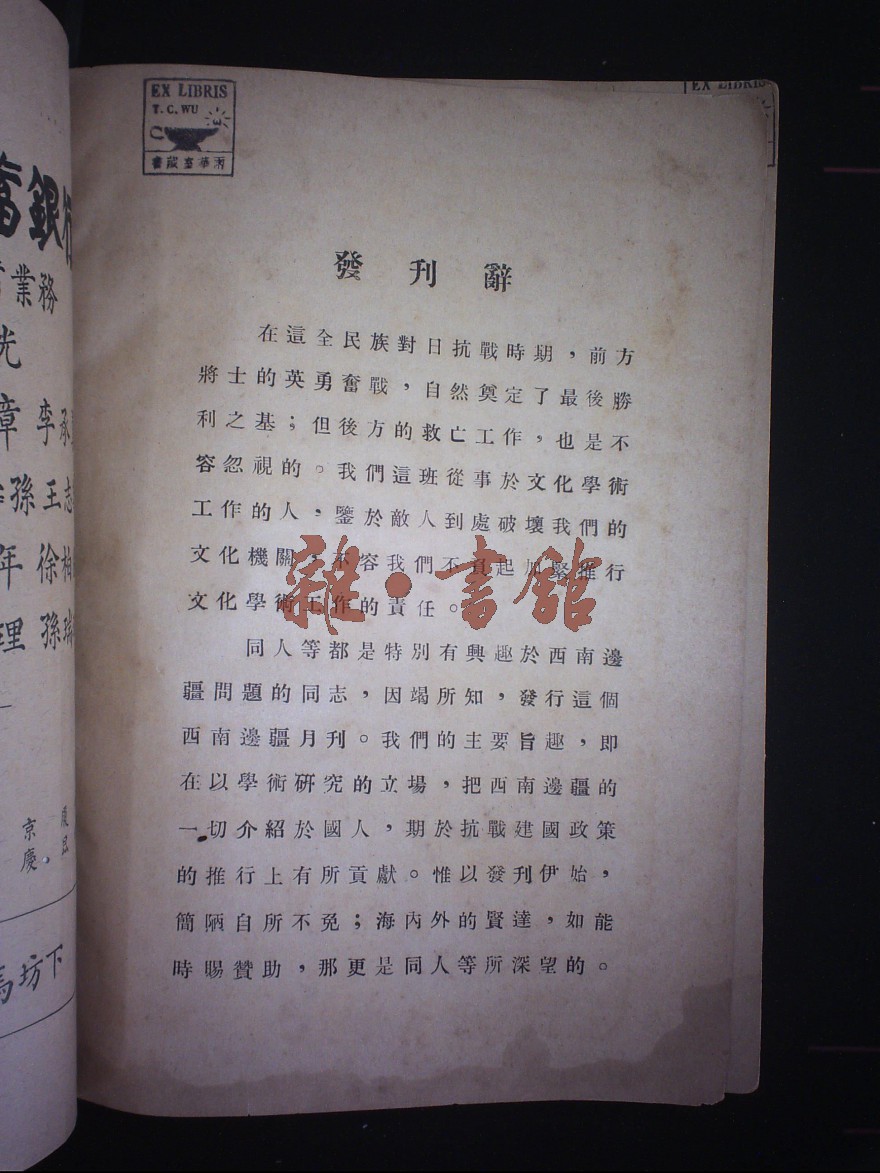 EX LIBRIS
T. C. WU
EX LIBRIS
發刊辭
在這全民族對日抗戰時期，前方
將士的英勇奮戰，自然奠定了最後勝
利之基；但後方的救亡工作，也是不
容忽視的。我們這班從事於文化學術
工作的人，鑒於敵人到處破壞我們的
文化機關，不容我們不負起加緊推行
文化學術工作的責任。
同人等都是特別有興趣於西南邊
疆問題的同志，因竭所知，發行這個
西南邊疆月刊。我們的主要旨趣，即
在以學術研究的立場，把西南邊疆的
一切介紹於國人，期於抗戰建國政策
的推行上有所貢獻。惟以發刊伊始，
簡陋自所不免；海內外的賢達，如能
時賜贊助，那更是同人等所深望的。
雜·書館
銀
業務
先
章 李承
孫 王志
年 徐柏
理 孫
京
慶
坊下